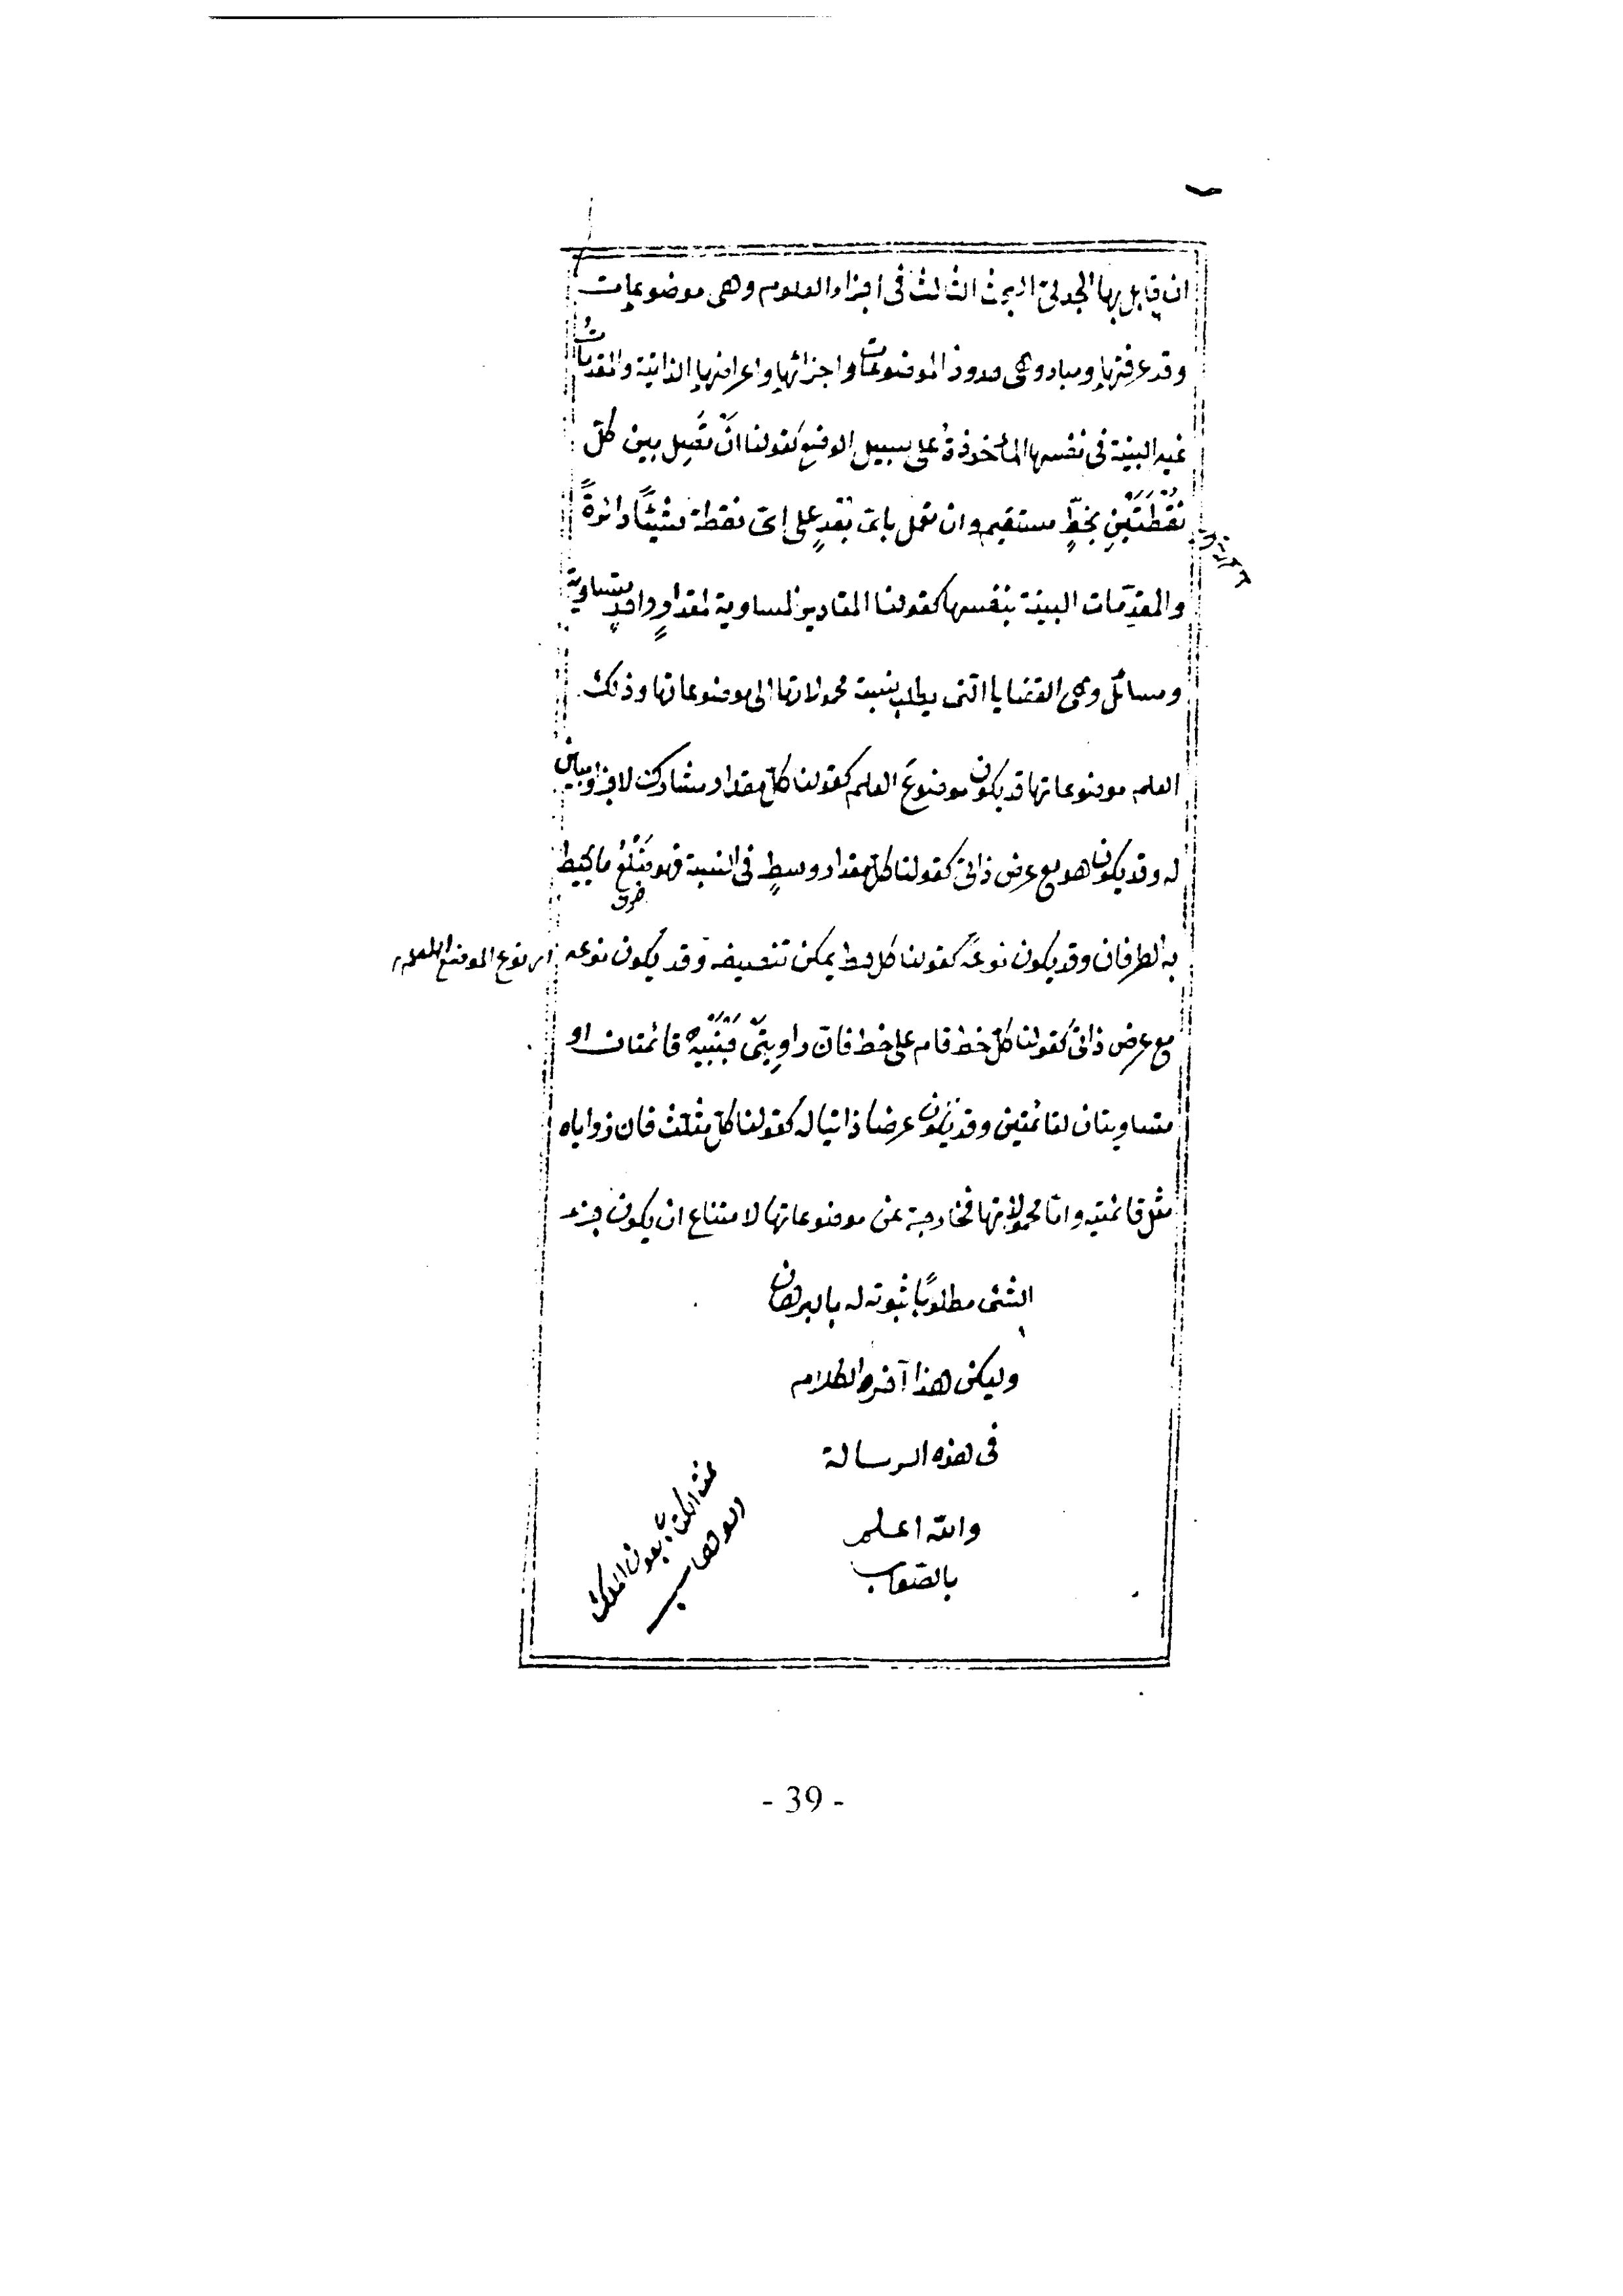 ان قابل بها الجدلى البحث الثالث فى اجزاء العلوم وهى موضوعات
وقد عرفتها ومباد وهى حدود الموضوعات واجزائها واعراضها الذاتية والمقدمات
غير البينة فى نفسها المأخوذة على سبيل الوضع كقولنا ان نصل بين كل
نقطتين بخط مستقيم وان نعمل باى بعد على اى نقطة شئنا دائرة
والمقدمات البينة بنفسها كقولنا المقادير المساوية لمقدار واحد متساوية
ومسائل وهى القضايا التى يطلب بنسبة محمولاتها الى موضوعاتها وذلك
العلم موضوعاتها قد يكون موضوع العلم كقولنا كل مقدار مشارك لاخر او مباين
له وقد يكون هو مع عرض ذاتى كقولنا كل مقدار وسط فى النسبة فهو ضلع ما يحيط
به الطرفان وقد يكون نوعه كقولنا كل خط يمكن تنصيفه وقد يكون نوعه
اى نوع الموضوع العلم
مع عرض ذاتى كقولنا كل خط قام على خط فان زاويتى جنبيه قائمتان او
متساويتان لقائمتين وقد يكون عرضا ذاتيا له كقولنا كل مثلث فان زواياه
مثل قائمتيه واما محمولاتها فخارجة عن موضوعاتها لامتناع ان يكون جزء
الشئ مطلوبًا ثبوته له بالبرهان
وليكن هذا آخر الكلام
فى هذه الرسالة
والله اعلم
بالصواب
تمت الكتاب بعون الملك
الوهاب
- 39 -